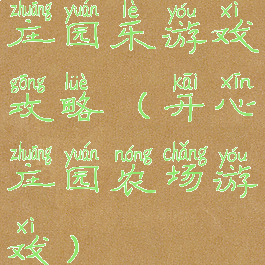 zhuāng yuán lè yóu xì
庄园乐游戏
gōng lüè kāi xīn
攻略(开心
zhuāng yuán nóng chǎng yóu
庄园农场游
xì
戏)